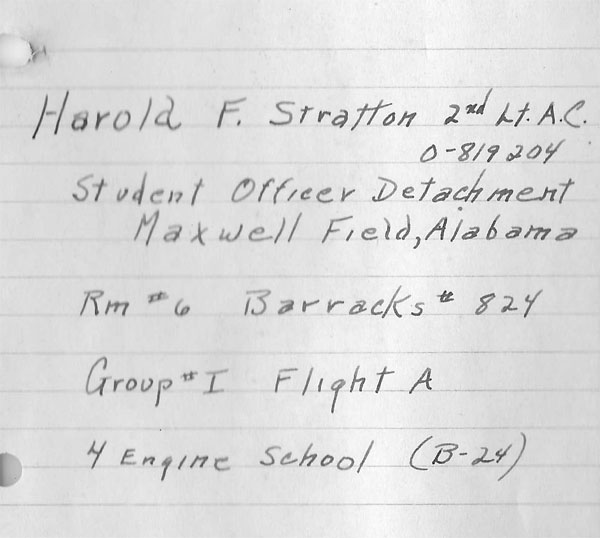 Harold F. Stratton 2nd Lt. A.C.
O-819204
Student Officer Detachment
Maxwell Field, Alabama
Rm #6 Barracks # 824
Group #I Flight A
4 Engine School (B-24)